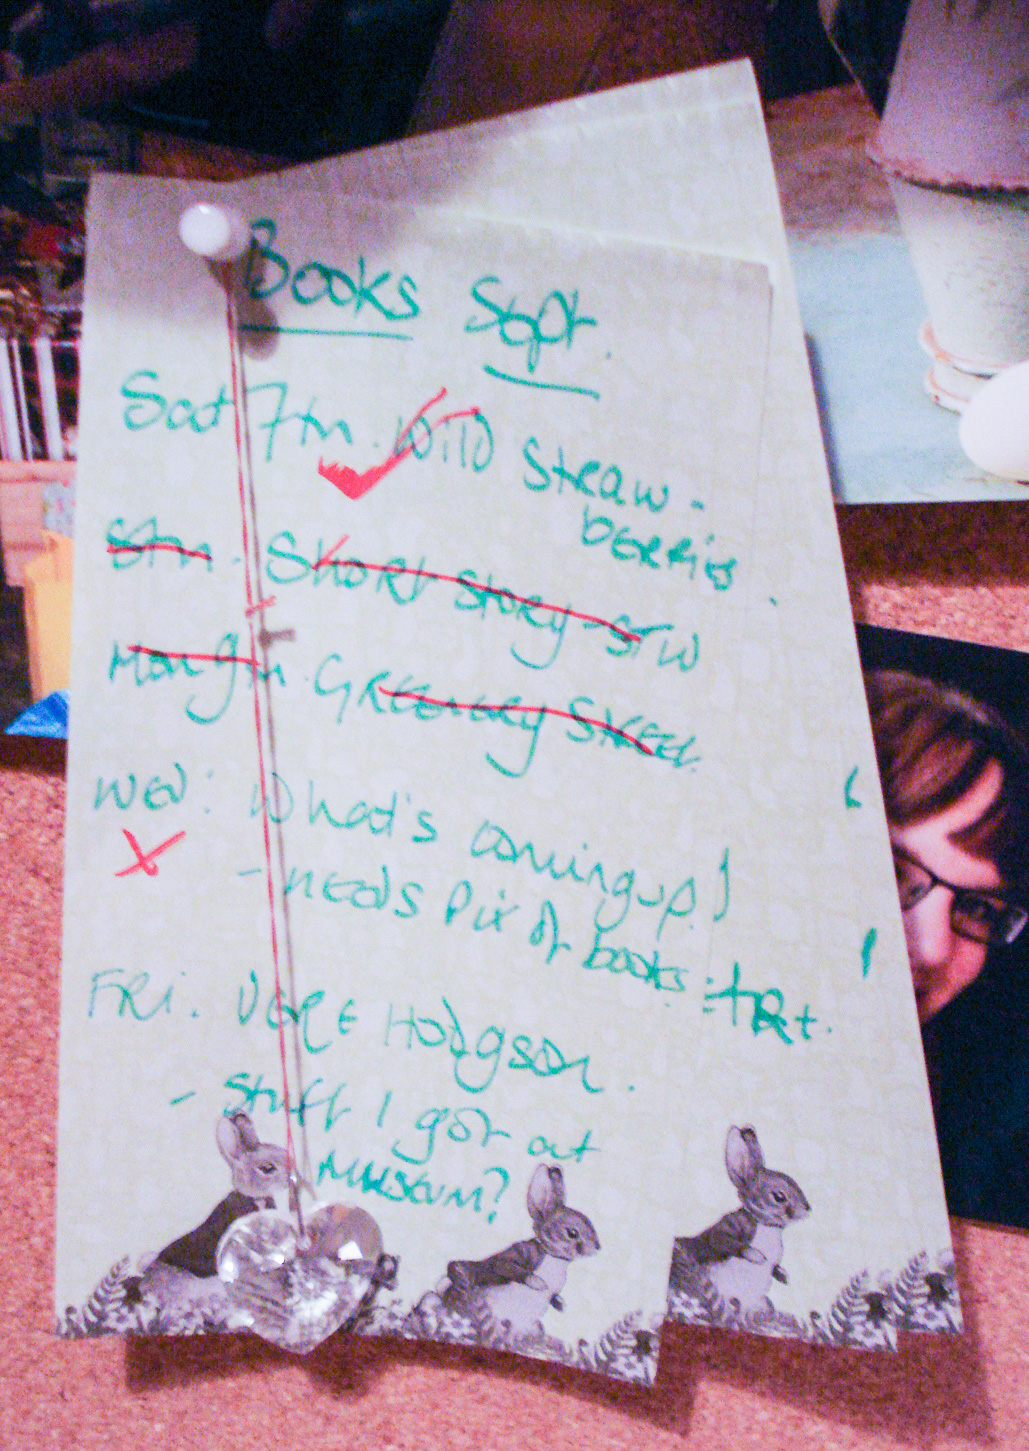 Books Sept.
Sat 7th. Wild Straw-
berries.
8th. Short Story STW
Mon 9th. Greenery Street.
Wed: What's coming up!
- needs pix of books
Fri. Vere Hodgson.
- Stuff I got at
Museum?